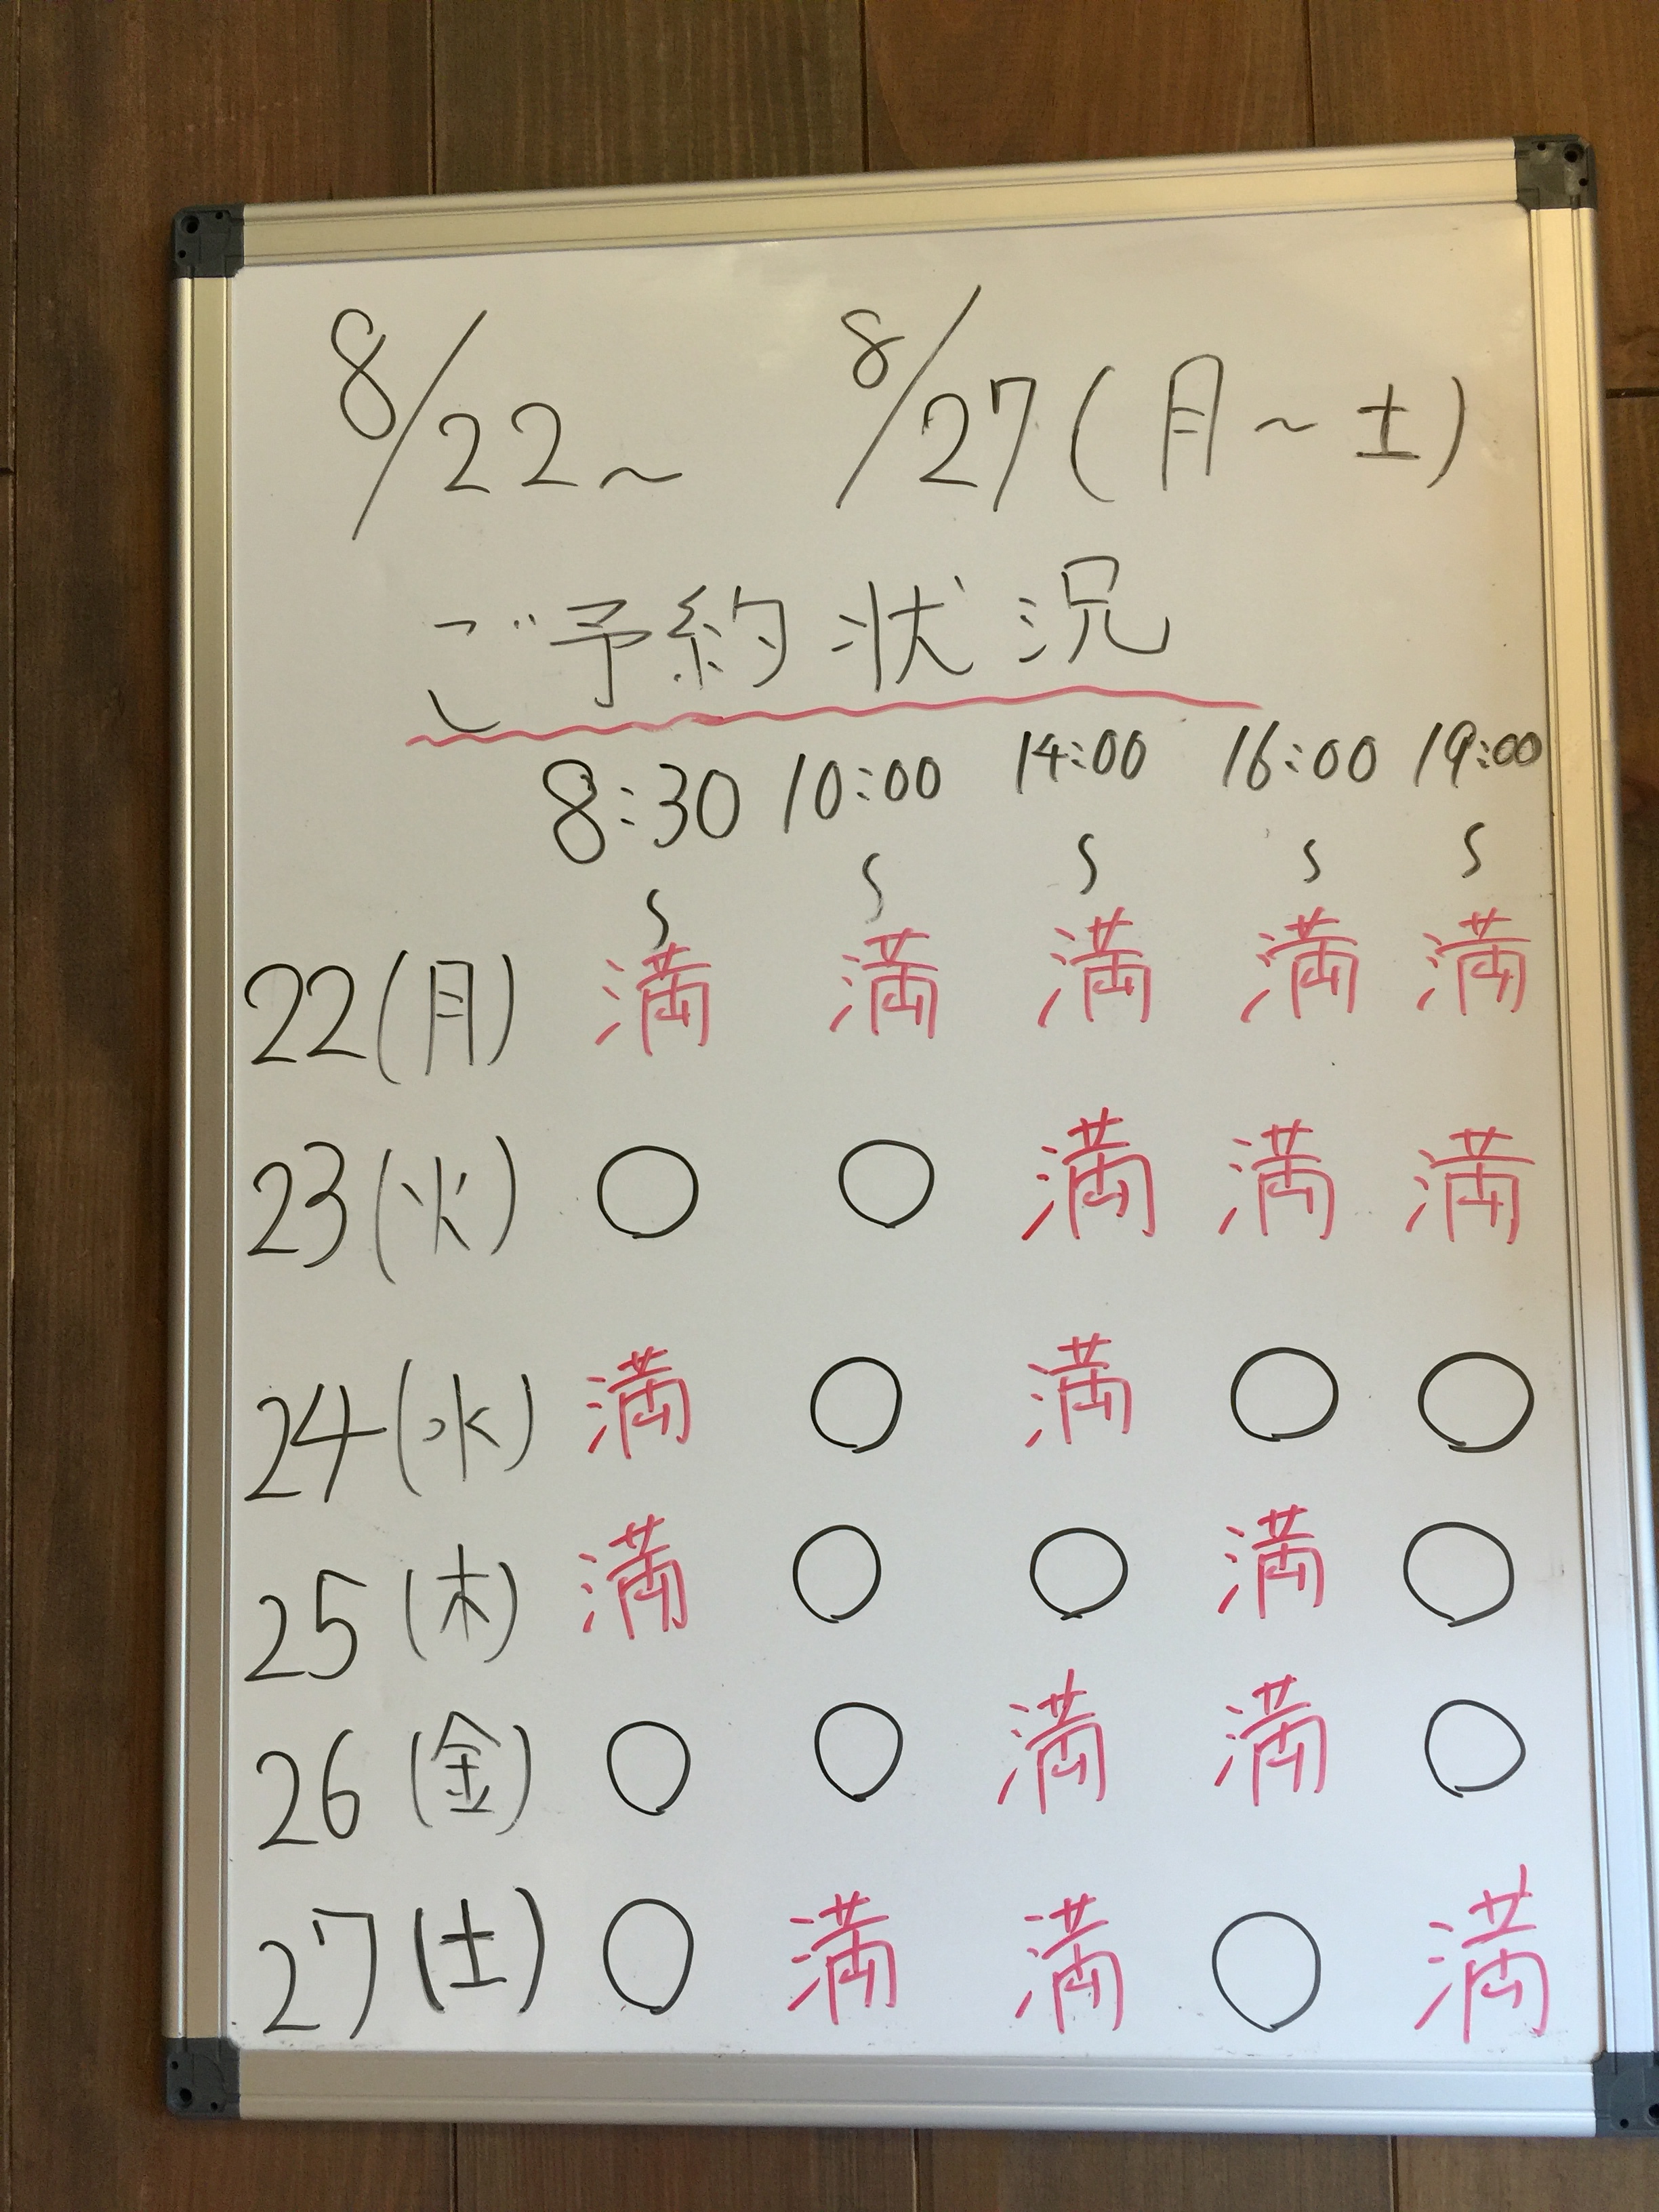 8/22～ 8/27(月～土)
ご予約状況
8:30 10:00 14:00 16:00 19:00
〜 〜 〜 〜 〜
22(月) 満 満 満 満 満
23(火) ○ ○ 満 満 満
24(水) 満 ○ 満 ○ ○
25(木) 満 ○ ○ 満 ○
26(金) ○ ○ 満 満 ○
27(土) ○ 満 満 ○ 満